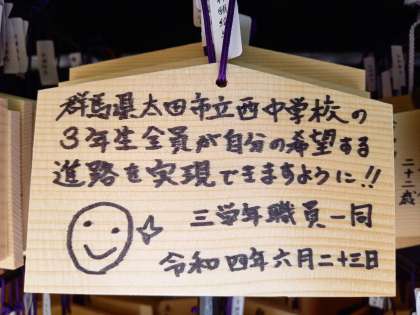 群馬県太田市立西中学校の
3年生全員が自分の希望する
進路を実現できますように!!
三学年職員一同
令和四年六月二十三日